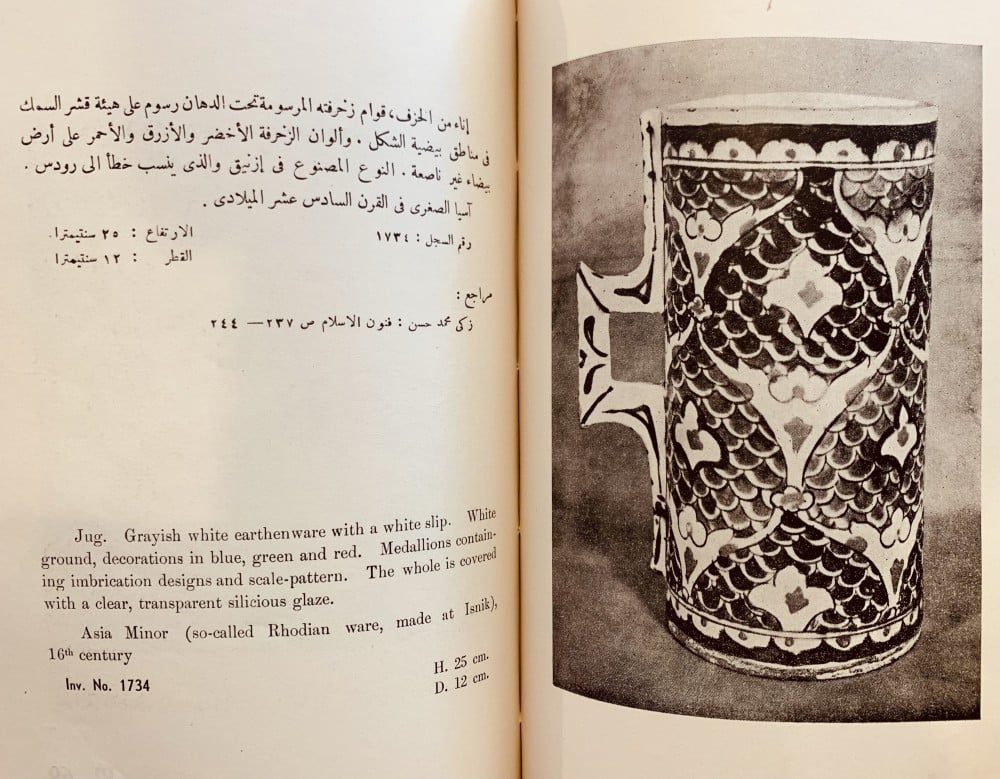 إناء من الخزف، قوام زخرفته المرسومة تحت الدهان رسوم على هيئة قشر السمك
فى مناطق بيضية الشكل . وألوان الزخرفة الأخضر والأزرق والأحمر على أرض
بيضاء غير ناصعة . النوع المصنوع فى إزنيق والذى ينسب خطأ الى رودس .
آسيا الصغرى فى القرن السادس عشر الميلادى .
رقم السجل : ١٧٣٤
الارتفاع : ٢٥ سنتيمترا .
القطر : ١٢ سنتيمترا
مراجع :
زكى محمد حسن : فنون الاسلام ص ٢٣٧ — ٢٤٤
Jug. Grayish white earthenware with a white slip. White
ground, decorations in blue, green and red. Medallions contain-
ing imbrication designs and scale-pattern. The whole is covered
with a clear, transparent silicious glaze.
Asia Minor (so-called Rhodian ware, made at Isnik),
16th century
H. 25 cm.
Inv. No. 1734
D. 12 cm.